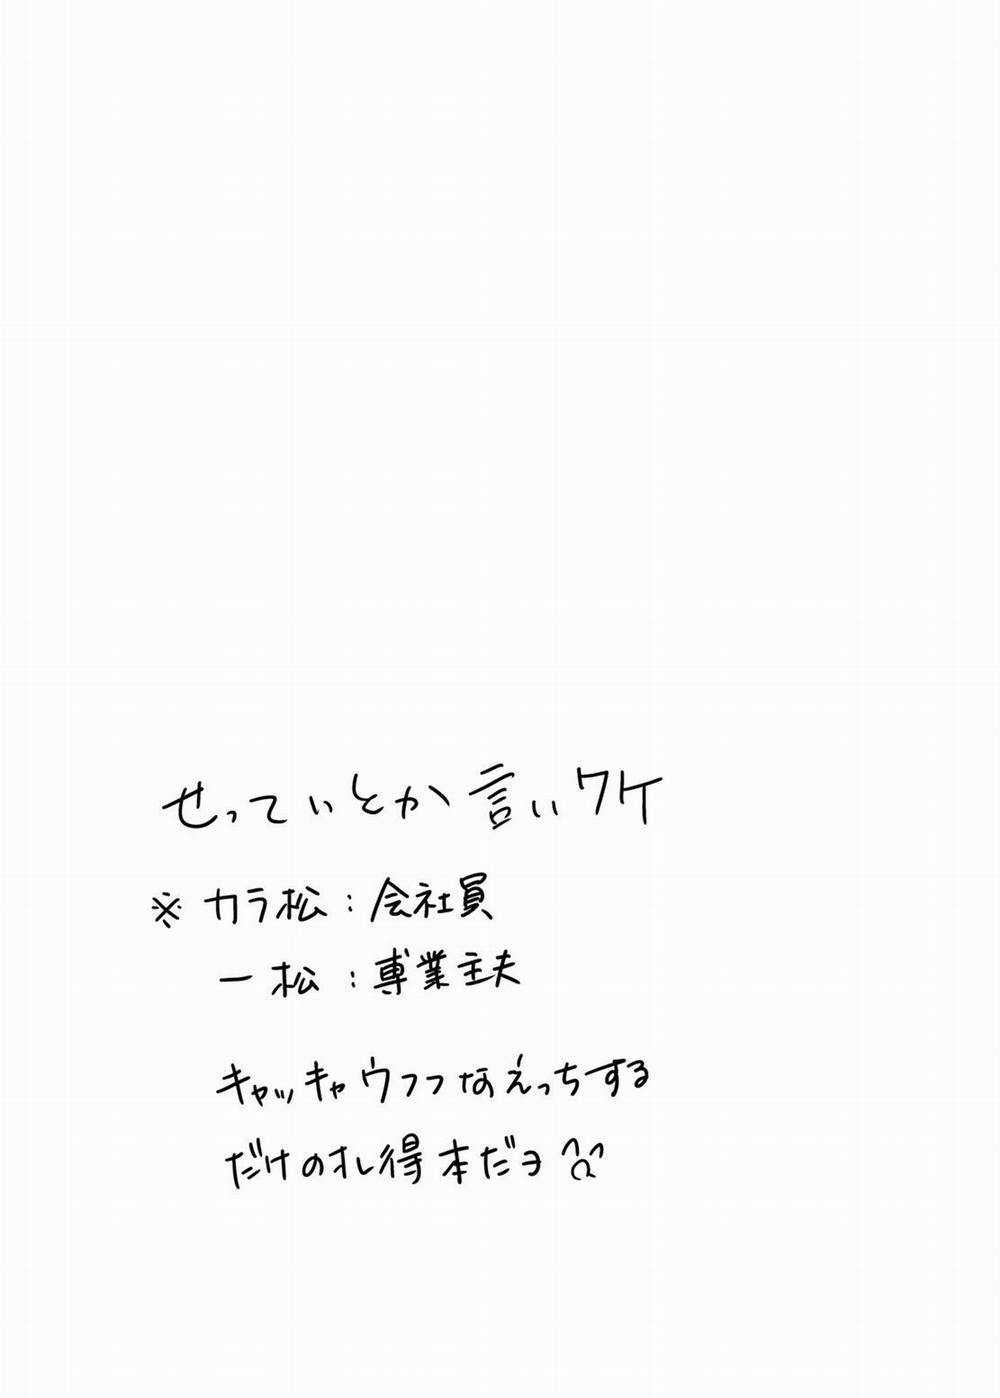 せっていとか言いワケ
※ カラ松：会社員
一松：専業主夫
キャッキャウフフなえっちする
だけのオレ得本だヨ